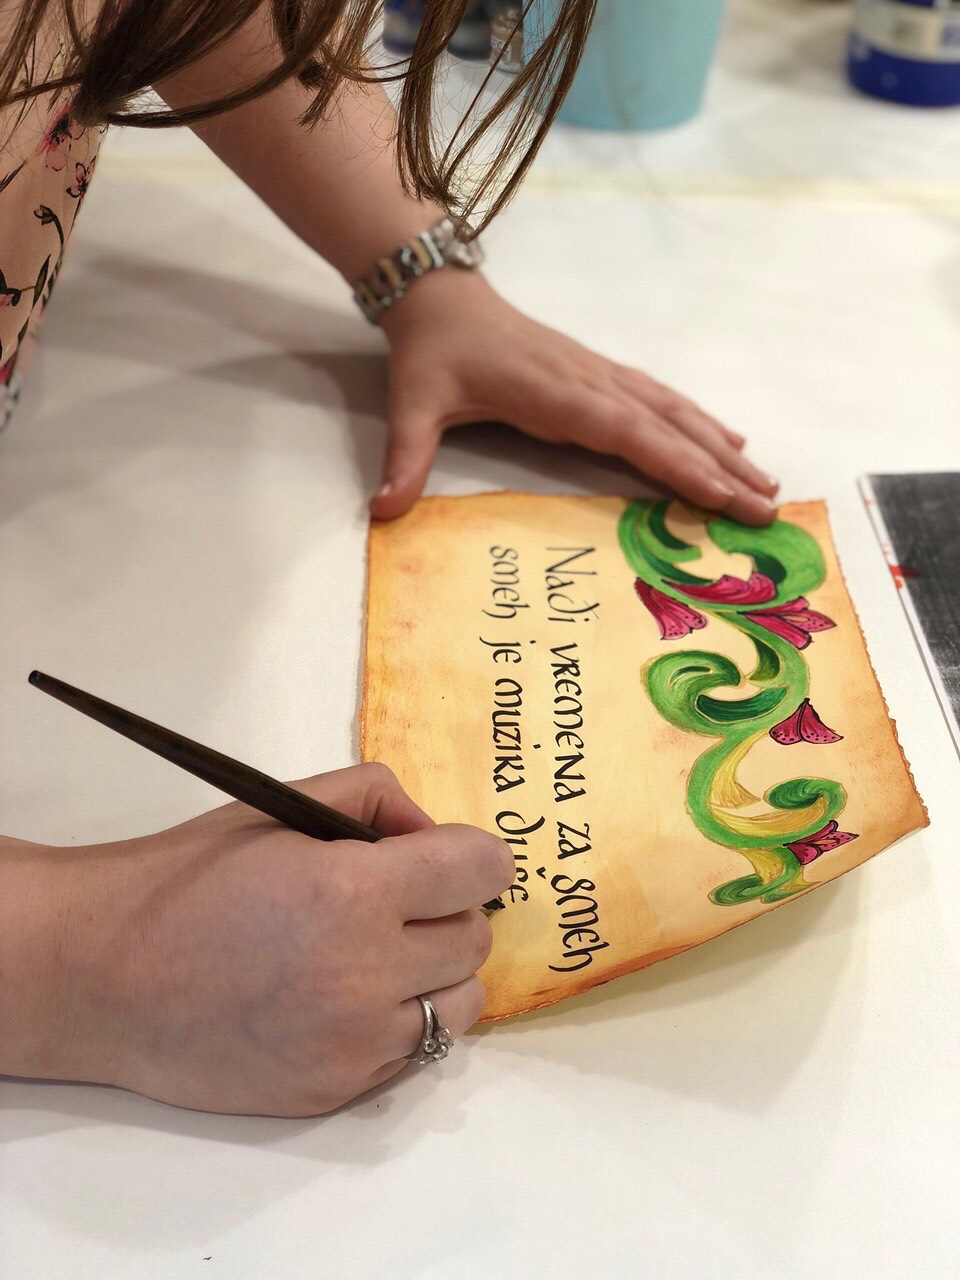 Nađi vremena za smeh
smeh je muzika duše